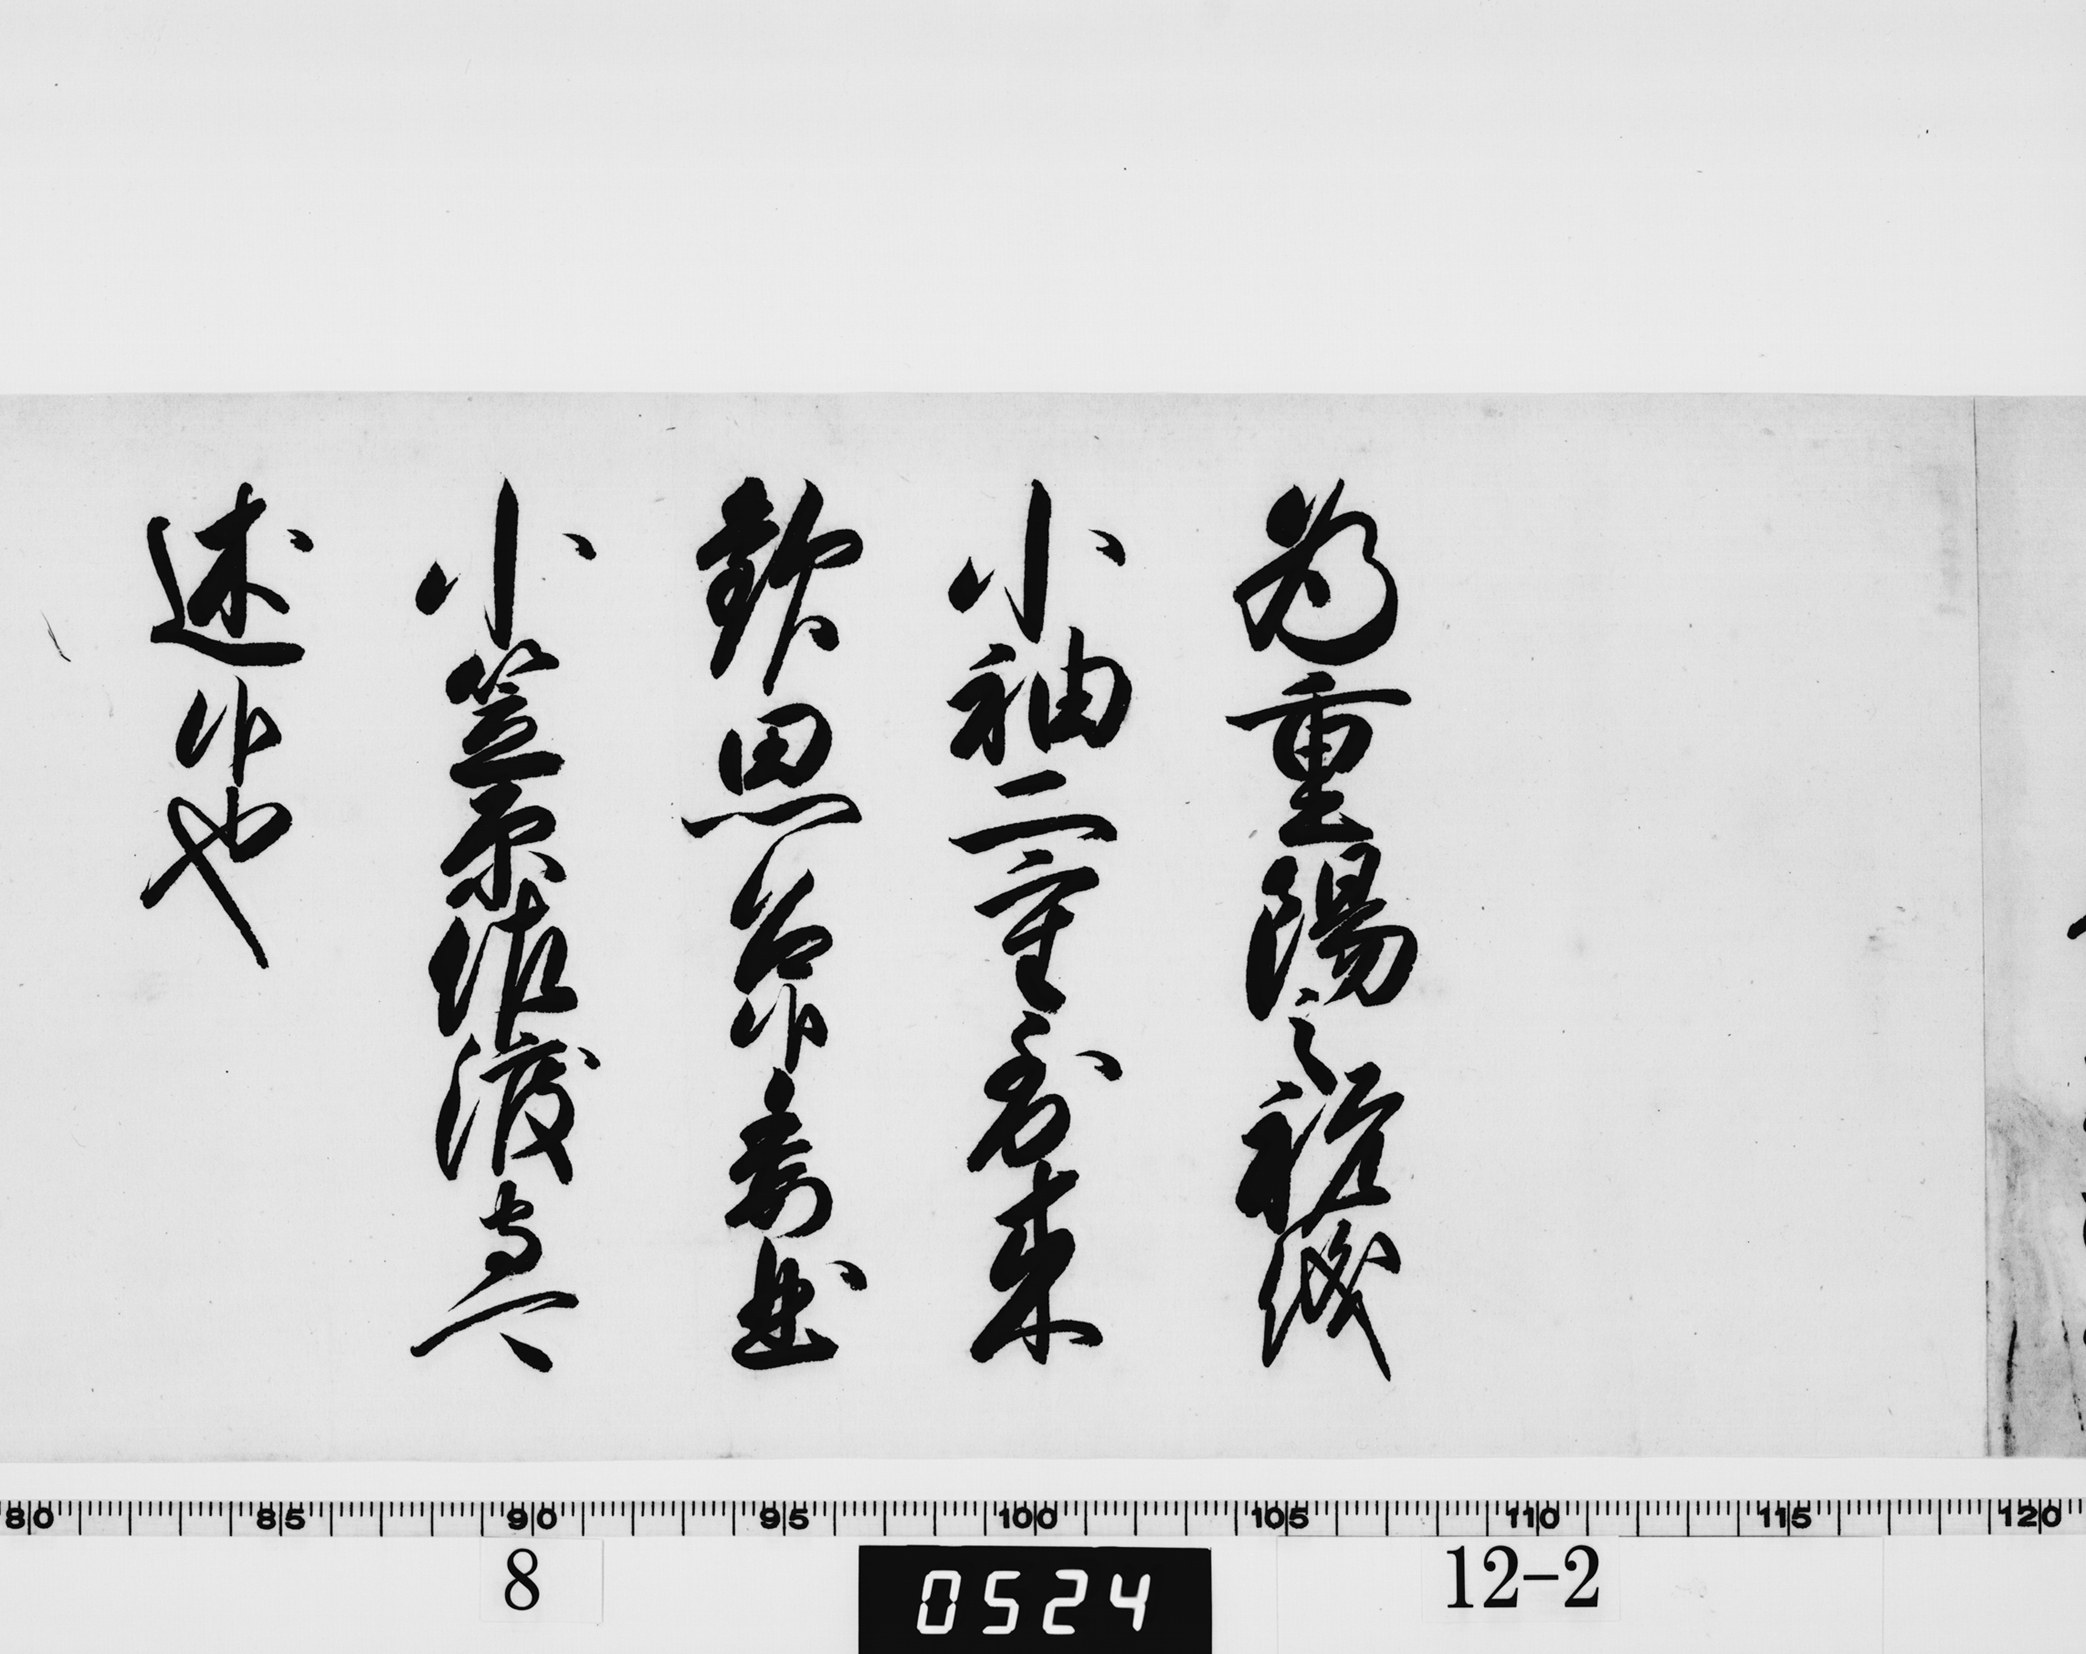 為重陽之祝儀
小袖二重到来
歓思召候委曲
小笠原佐渡守可
述候也
80 85 90 95 100 105 110 115 120
8 0524 12-2